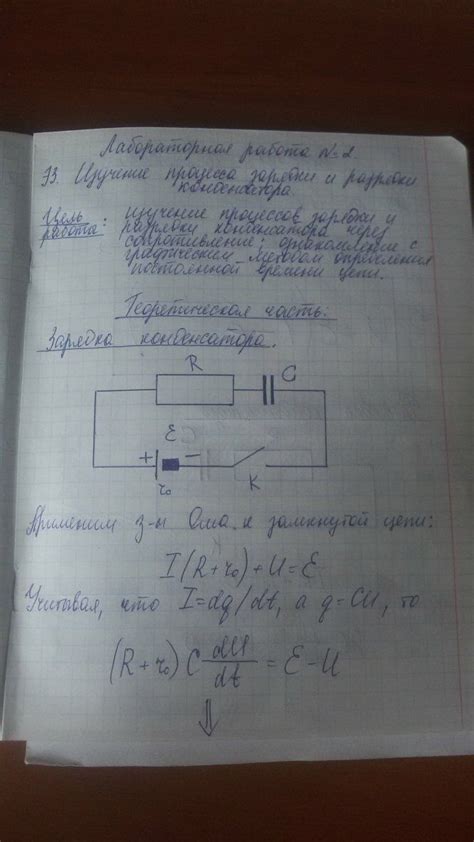 Лабораторная работа №2.
73. Изучение процесса зарядки и разрядки
конденсатора.
Цель работа: изучение процессов зарядки и
разрядки конденсатора через
сопротивление; ознакомление с
графическим методом определения
постоянной времени цепи.
Теоретическая часть:
Зарядка конденсатора.
R
C
ε
+ −
r₀
K
Применим з-н Ома к замкнутой цепи:
I(R+r₀)+U=ε
Учитывая, что I=dq/dt, а q=CU, то
(R+r₀)C dU/dt = ε−U
⇓